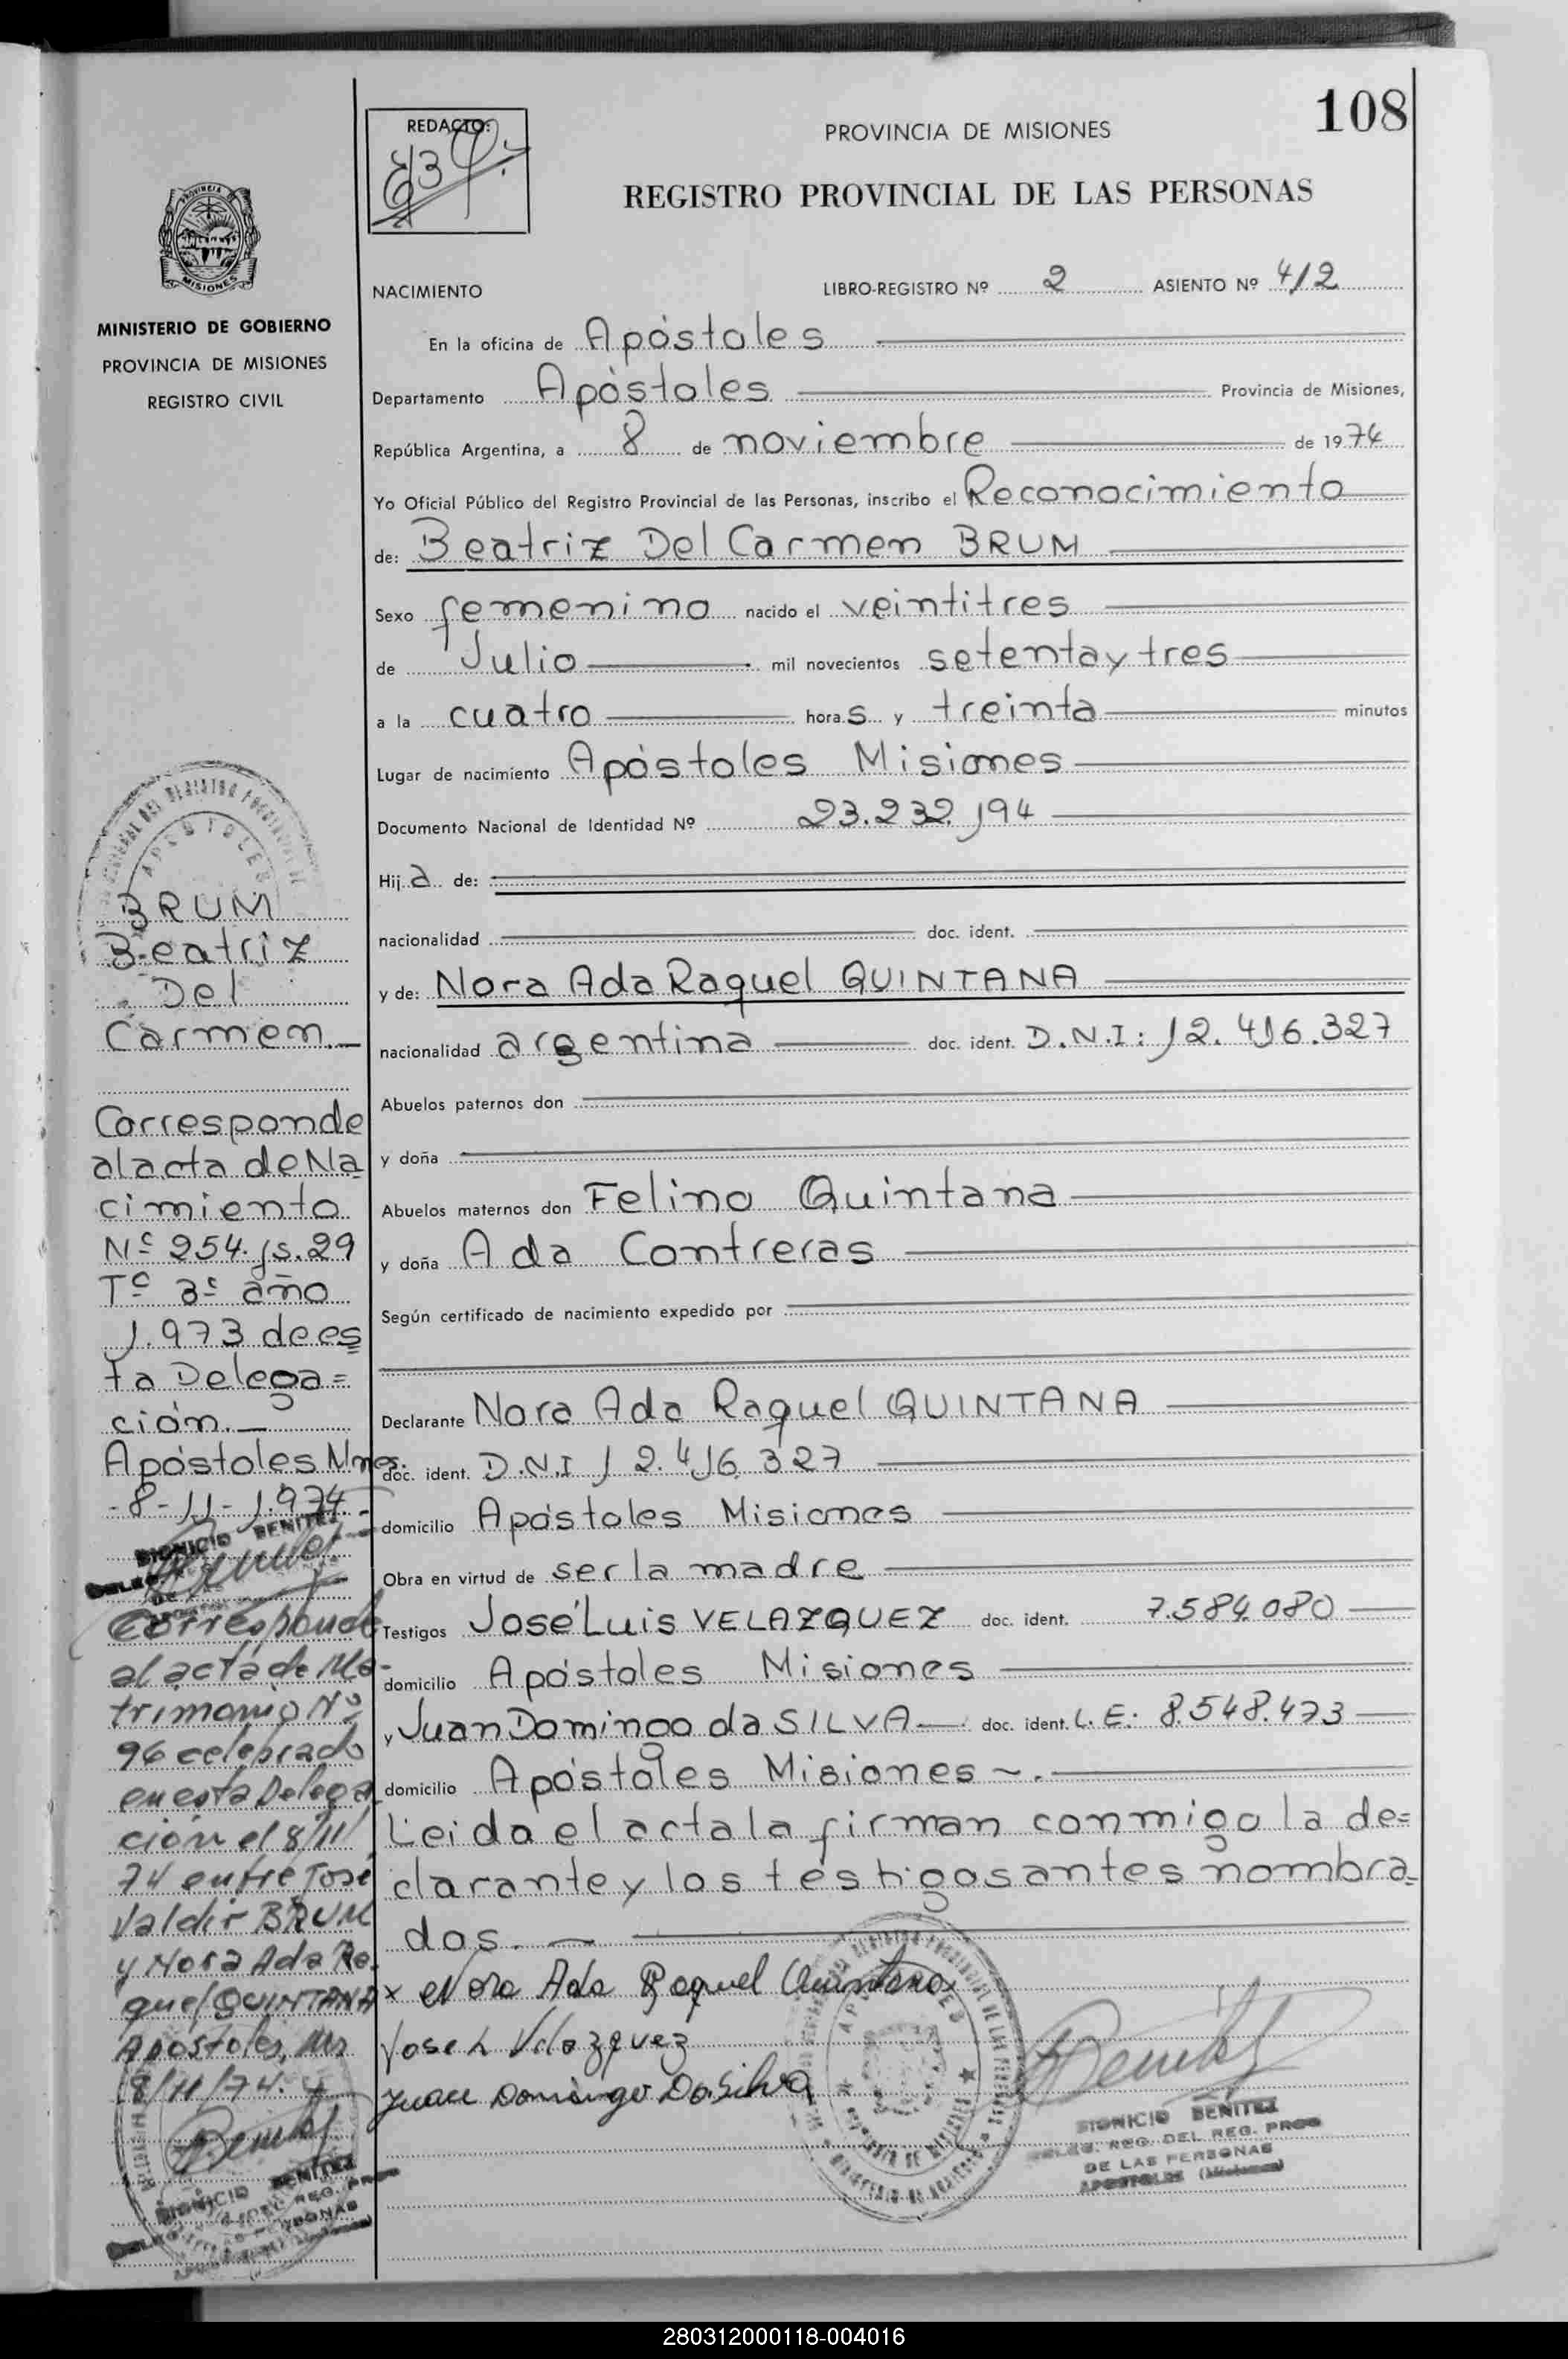 108
REDACTO:
PROVINCIA DE MISIONES
REGISTRO PROVINCIAL DE LAS PERSONAS
NACIMIENTO LIBRO-REGISTRO Nº 2 ASIENTO Nº 412
En la oficina de Apóstoles
Departamento Apóstoles Provincia de Misiones,
República Argentina, a 8 de noviembre de 1974
Yo Oficial Público del Registro Provincial de las Personas, inscribo el Reconocimiento
de: Beatriz Del Carmen BRUM
Sexo femenino nacido el veintitres
de Julio mil novecientos setenta y tres
a la cuatro hora s y treinta minutos
Lugar de nacimiento Apóstoles Misiones
Documento Nacional de Identidad Nº 23.232.194
Hij a de:
nacionalidad doc. ident.
y de: Nora Ada Raquel QUINTANA
nacionalidad argentina doc. ident. D.N.I: 12.416.327
Abuelos paternos don
y doña
Abuelos maternos don Felino Quintana
y doña Ada Contreras
Según certificado de nacimiento expedido por
Declarante Nora Ada Raquel QUINTANA
doc. ident. D.N.I 12.416.327
domicilio Apóstoles Misiones
Obra en virtud de ser la madre
Testigos José Luis VELAZQUEZ doc. ident. 7.584.080
domicilio Apóstoles Misiones
y Juan Domingo da SILVA doc. ident. L.E: 8.548.473
domicilio Apóstoles Misiones ~.
Leida el acta la firman conmigo la de=
clarante y los testigos antes nombra=
dos.
x Nora Ada Raquel Quintana
Jose L Velazquez
Juan Domingo DaSilva
DIONICIO BENITEZ
DELEG. REG. DEL REG. PROV.
DE LAS PERSONAS
APOSTOLES (Misiones)
PROVINCIA
MISIONES
MINISTERIO DE GOBIERNO
PROVINCIA DE MISIONES
REGISTRO CIVIL
APOSTOLES
BRUM
Beatriz
Del
Carmen.
Corresponde
al acta de Na
cimiento
Nº 254. fs. 29
Tº 3º año
1.973 de es
ta Delega=
ción.
Apóstoles Mnes.
-8-11-1.974-
DIONICIO BENITEZ
Corresponde
al acta de Ma-
trimonio Nº
96 celebrado
en esta Delega
ción el 8/11/
74 entre José
Valdir BRUM
y Nora Ada Ra.
quel QUINTANA
Apóstoles, Mns
8/11/74.
DIONICIO BENITEZ
280312000118-004016